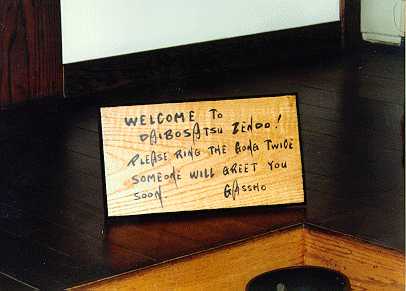 WELCOME TO
DAIBOSATSU ZENDO!
PLEASE RING THE GONG TWICE
SOMEONE WILL GREET YOU
SOON GASSHO